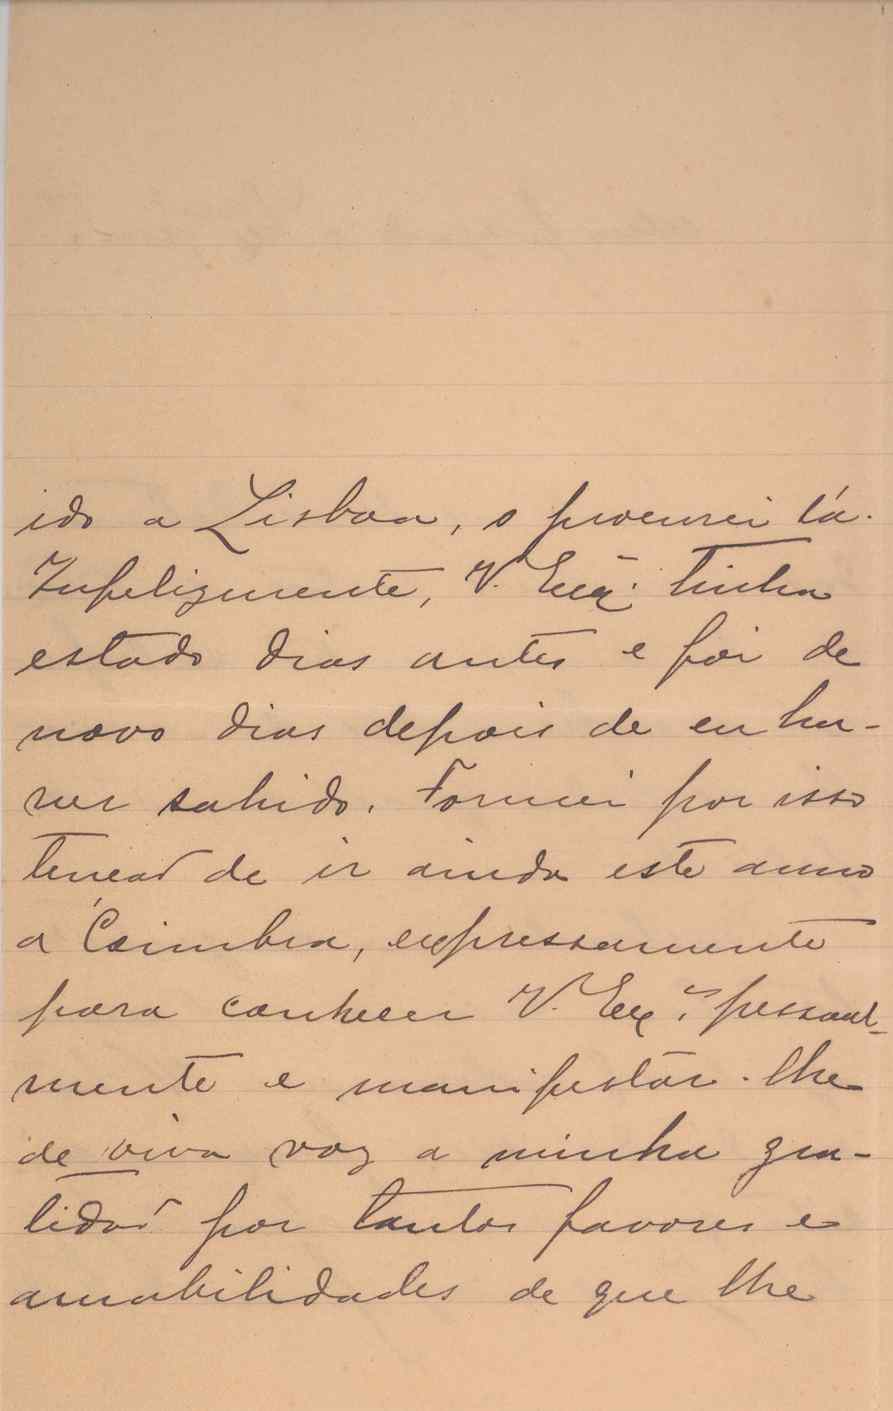 ido a Lisboa, o procurei lá.
Infelizmente, V. Exª. tinha
estado dias antes e foi de
novo dias depois de eu ha-
ver sahido. Formei por isso
tenção de ir ainda este anno
a Coimbra, expressamente
para conhecer V. Exª. pessoal-
mente e manifestar-lhe
de viva voz a minha gra-
tidão por tantos favores e
amabilidades de que lhe